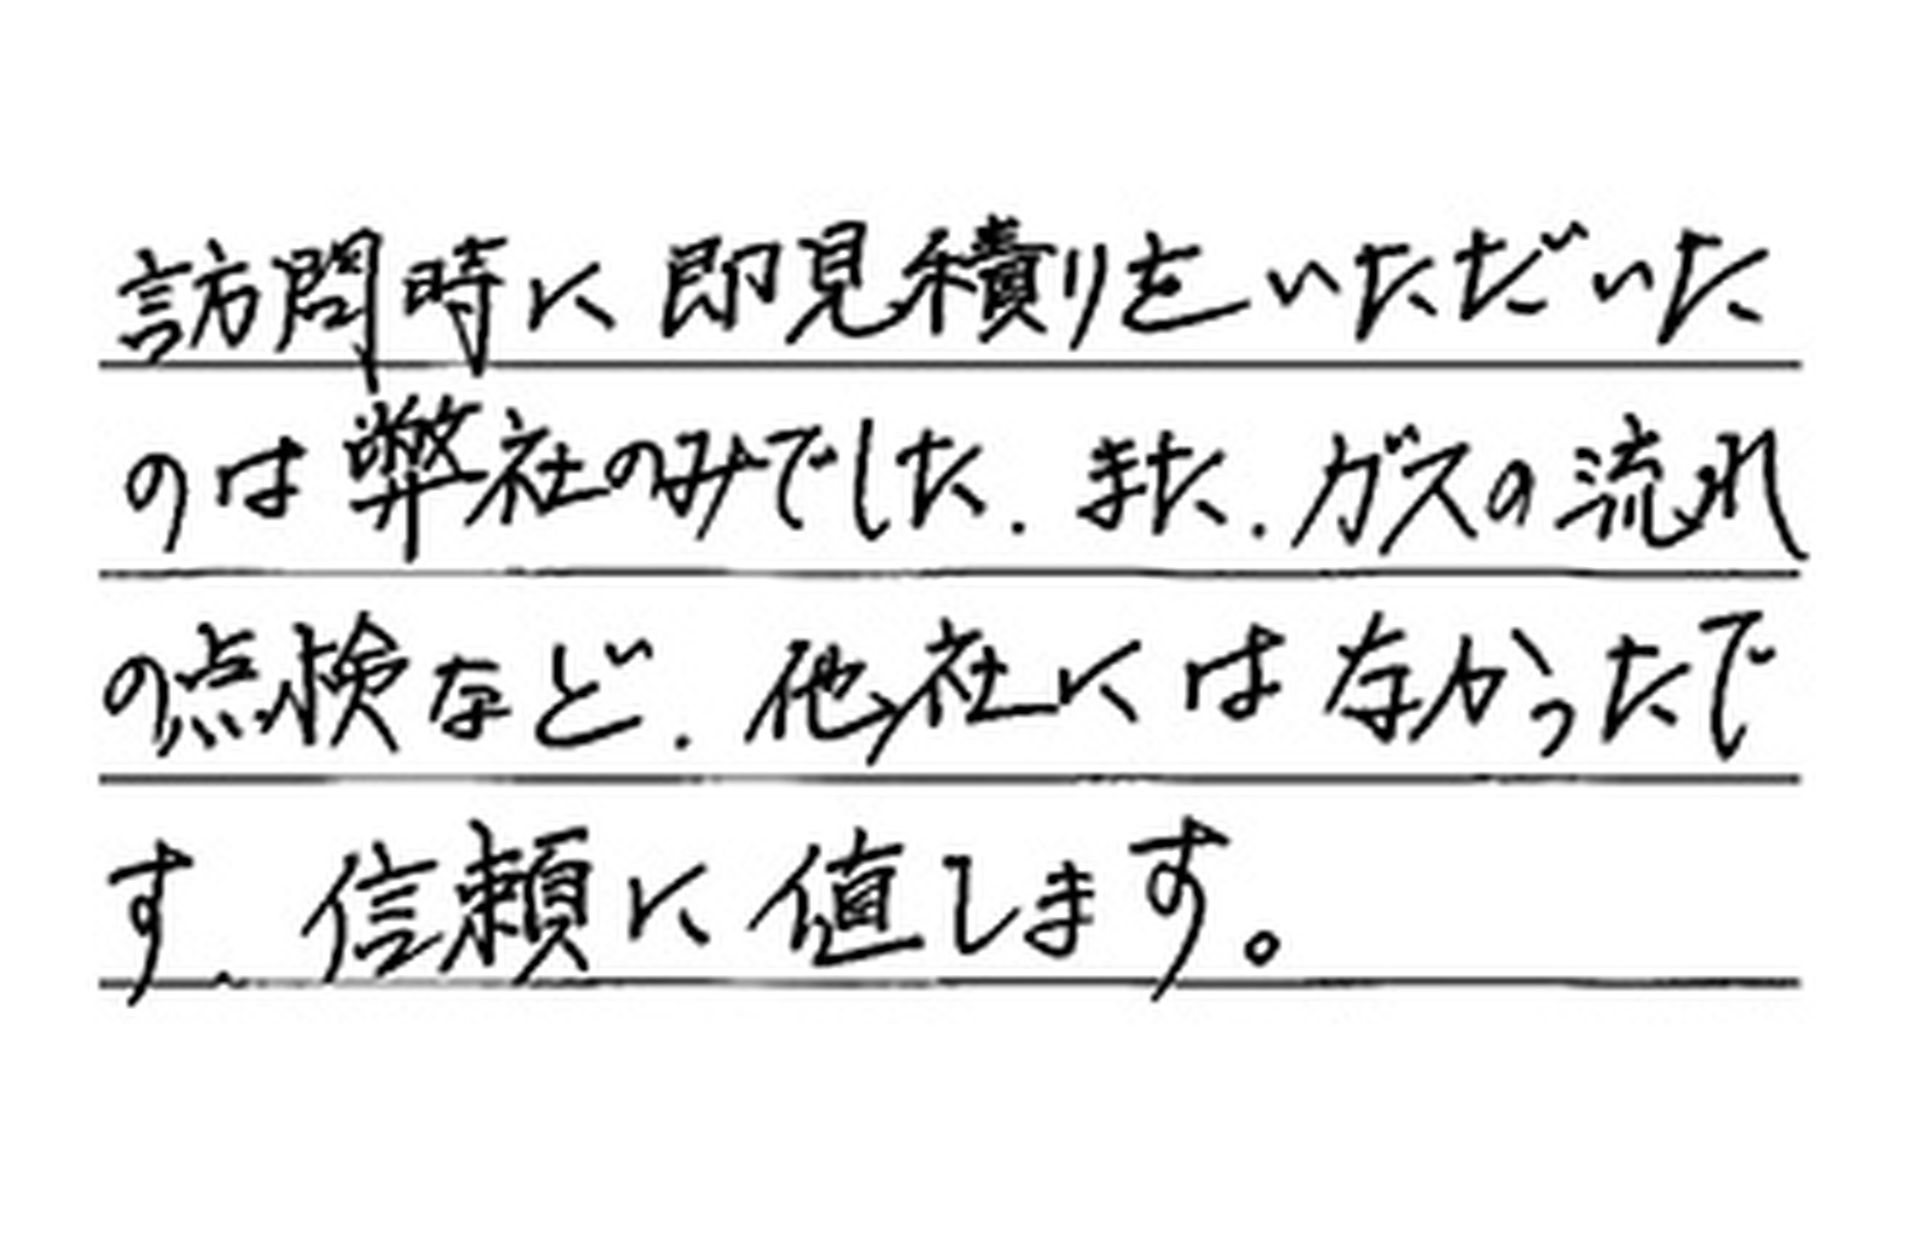 訪問時に即見積りをいただいた
のは弊社のみでした. また. ガスの流れ
の点検など. 他社にはなかったで
す、信頼に値します。